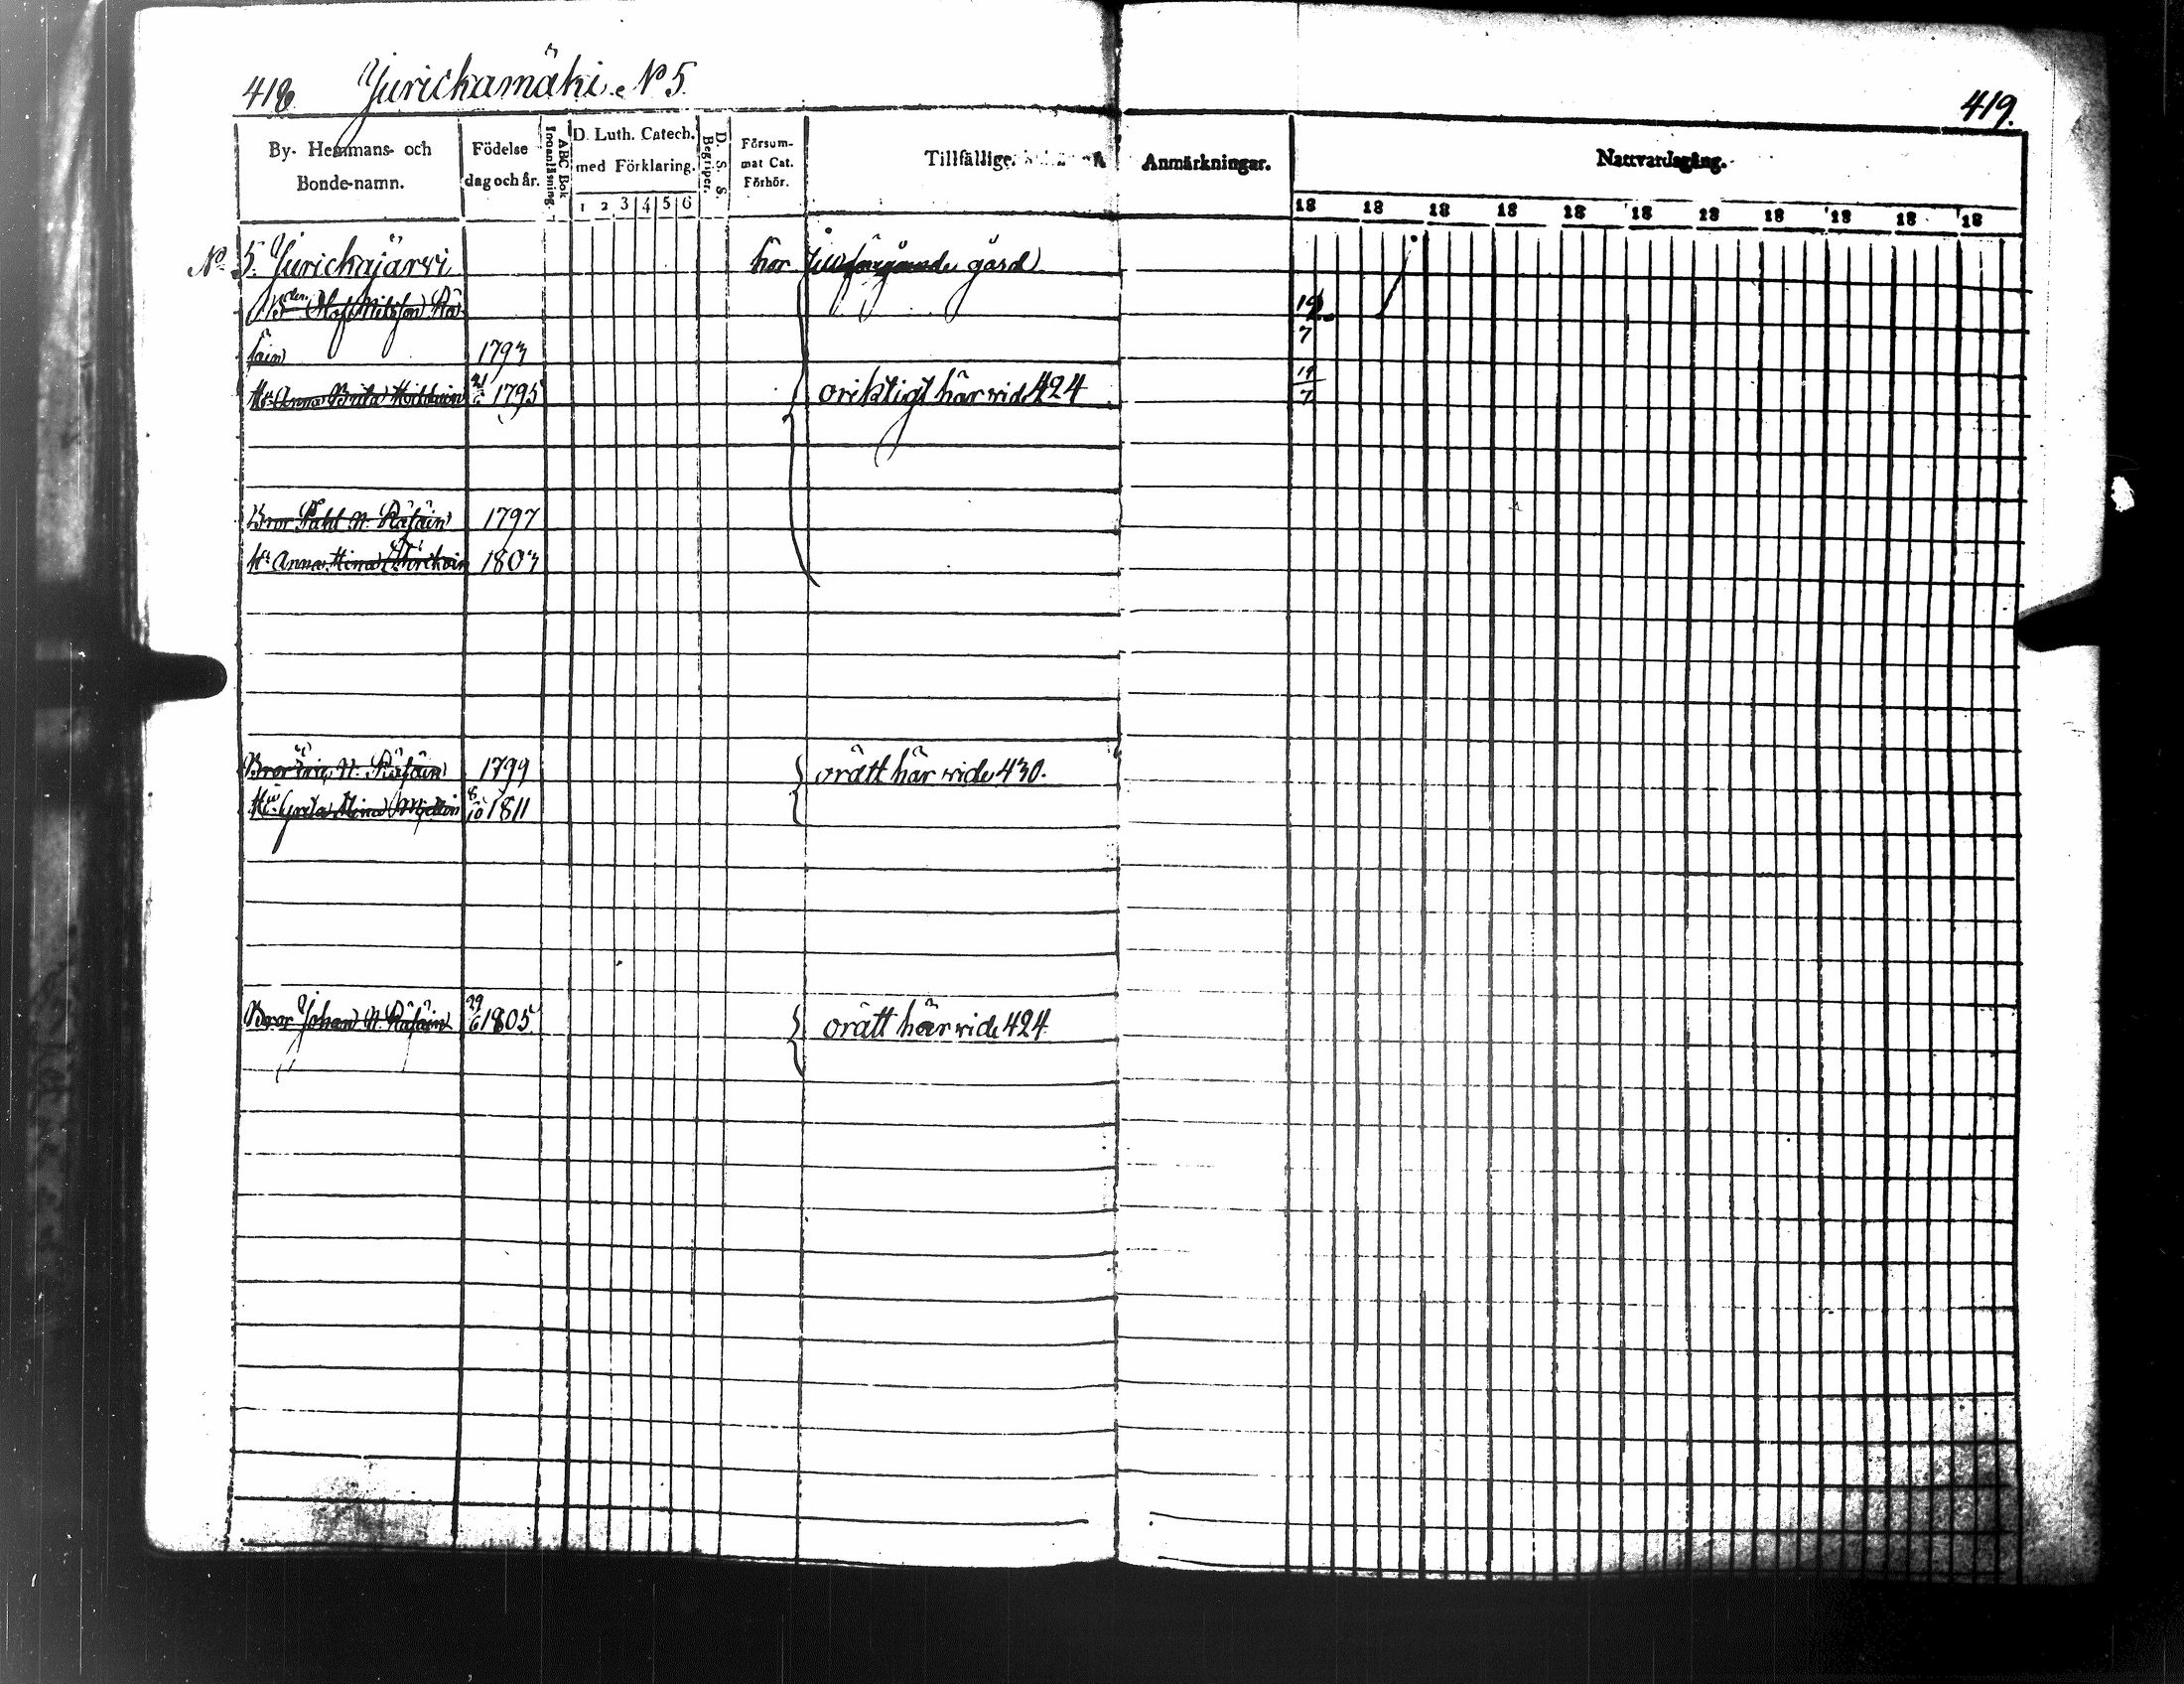 418 Jurickamäki N° 5.
419.
By- Hemmans- och Bonde-namn.
Födelse dag och år.
ABC Bok Innanläsning.
D. Luth. Catech. med Förklaring.
1 2 3 4 5 6
D. S. S. Begriper.
Försum-mat Cat. Förhör.
Tillfällige
Anmärkningar.
Nattvardsgång.
18 18 18 18 18 18 18 18 18 18 18
N° 5. Jurickajärvi hör till gård
Olof Nilsson Rä- 19
säin 1793 7
Anna Brita 21/6 1795 oriktigt här vide 424 19/7
Bror Påhl N. Räsäin 1797
Hu Anna Stina 1803
Bror Eric N. Räsäin 1799 orätt här vide 430.
Hu Greta Stina 8/10 1811
Bror Johan N. Räsäin 29/6 1805 orätt här vide 424